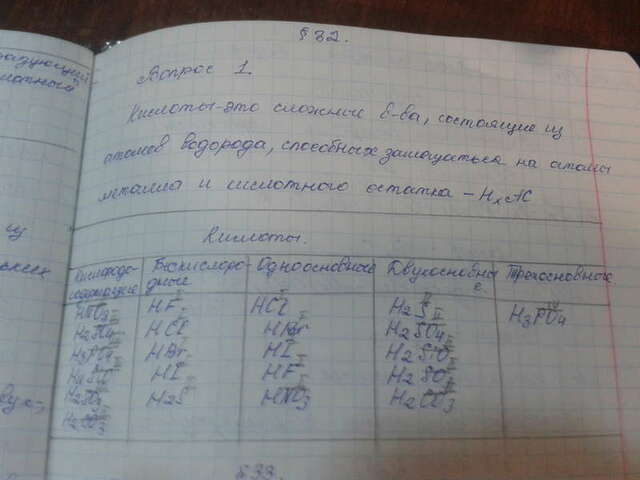 § 32.
Вопрос 1.
Кислоты-это сложные в-ва, состоящие из
атомов водорода, способных замещаться на атомы
металла и кислотного остатка – HxAC
Кислоты.
Кислородо- Бескислоро- Одноосновные Двухосновны Трехосновные
содержащие дные е.
HNO3 HF HCl H2S H3PO4
H2SO4 HCl HBr H2SO4
H3PO4 HBr HI
HI HF
H2S HNO3 H2CO3
H2CO3
§33.
из